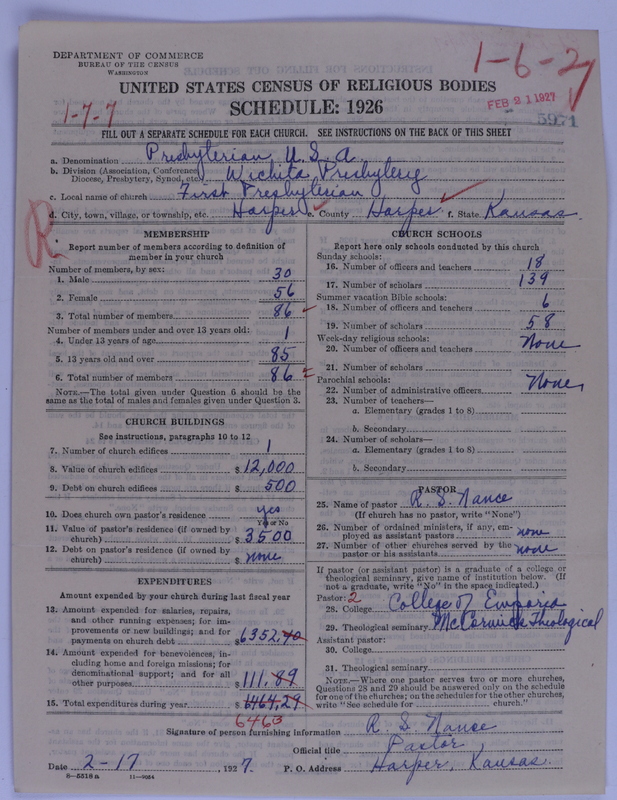 DEPARTMENT OF COMMERCE
BUREAU OF THE CENSUS
WASHINGTON
1-6-27
FEB 21 1927
5971
1-7-7
UNITED STATES CENSUS OF RELIGIOUS BODIES
SCHEDULE: 1926
FILL OUT A SEPARATE SCHEDULE FOR EACH CHURCH. SEE INSTRUCTIONS ON THE BACK OF THIS SHEET
a. Denomination Presbyterian, U.S.A.
b. Division (Association, Conference, Diocese, Presbytery, Synod, etc.) Wichita Presbytery
c. Local name of church First Presbyterian
d. City, town, village, or township, etc. Harper e. County Harper f. State Kansas
R
MEMBERSHIP
Report number of members according to definition of member in your church
Number of members, by sex:
1. Male 30
2. Female 56
3. Total number of members 86
Number of members under and over 13 years old:
4. Under 13 years of age 1
5. 13 years old and over 85
6. Total number of members 86
NOTE.—The total given under Question 6 should be the same as the total of males and females given under Question 3.
CHURCH BUILDINGS
See instructions, paragraphs 10 to 12
7. Number of church edifices 1
8. Value of church edifices $12,000
9. Debt on church edifices $ 500
10. Does church own pastor's residence yes
Yes or No
11. Value of pastor's residence (if owned by church) $3500
12. Debt on pastor's residence (if owned by church) $ none
EXPENDITURES
Amount expended by your church during last fiscal year
13. Amount expended for salaries, repairs, and other running expenses; for improvements or new buildings; and for payments on church debt $6352.40
14. Amount expended for benevolences, including home and foreign missions; for denominational support; and for all other purposes $111.89
15. Total expenditures during year $6464.29
6463
CHURCH SCHOOLS
Report here only schools conducted by this church
Sunday schools:
16. Number of officers and teachers 18
17. Number of scholars 139
Summer vacation Bible schools:
18. Number of officers and teachers 6
19. Number of scholars 58
Week-day religious schools:
20. Number of officers and teachers None
21. Number of scholars
Parochial schools:
22. Number of administrative officers None
23. Number of teachers—
a. Elementary (grades 1 to 8)
b. Secondary
24. Number of scholars—
a. Elementary (grades 1 to 8)
b. Secondary
PASTOR
25. Name of pastor R. S. Nance
(If church has no pastor, write "None")
26. Number of ordained ministers, if any, employed as assistant pastors none
27. Number of other churches served by the pastor or his assistants none
If pastor (or assistant pastor) is a graduate of a college or theological seminary, give name of institution below. (If not a graduate, write "No" in the space indicated.)
Pastor: 2
28. College College of Emporia
29. Theological seminary McCormick Theological
Assistant pastor:
30. College
31. Theological seminary
NOTE.—Where one pastor serves two or more churches, Questions 28 and 29 should be answered only on the schedule for one of the churches; on the schedules for the other churches, write "See schedule for ______ church."
Signature of person furnishing information R. S. Nance
Official title Pastor
Date 2-17, 1927. P. O. Address Harper, Kansas.
8-5518 a 11-9034